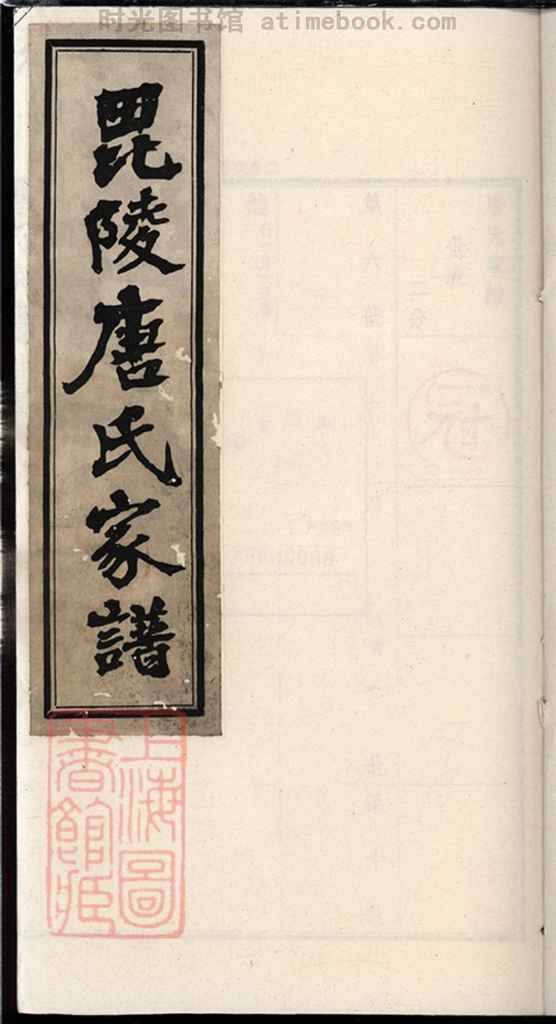 时光图书馆 atimebook.com
毘陵唐氏家譜
上海圖
書館藏